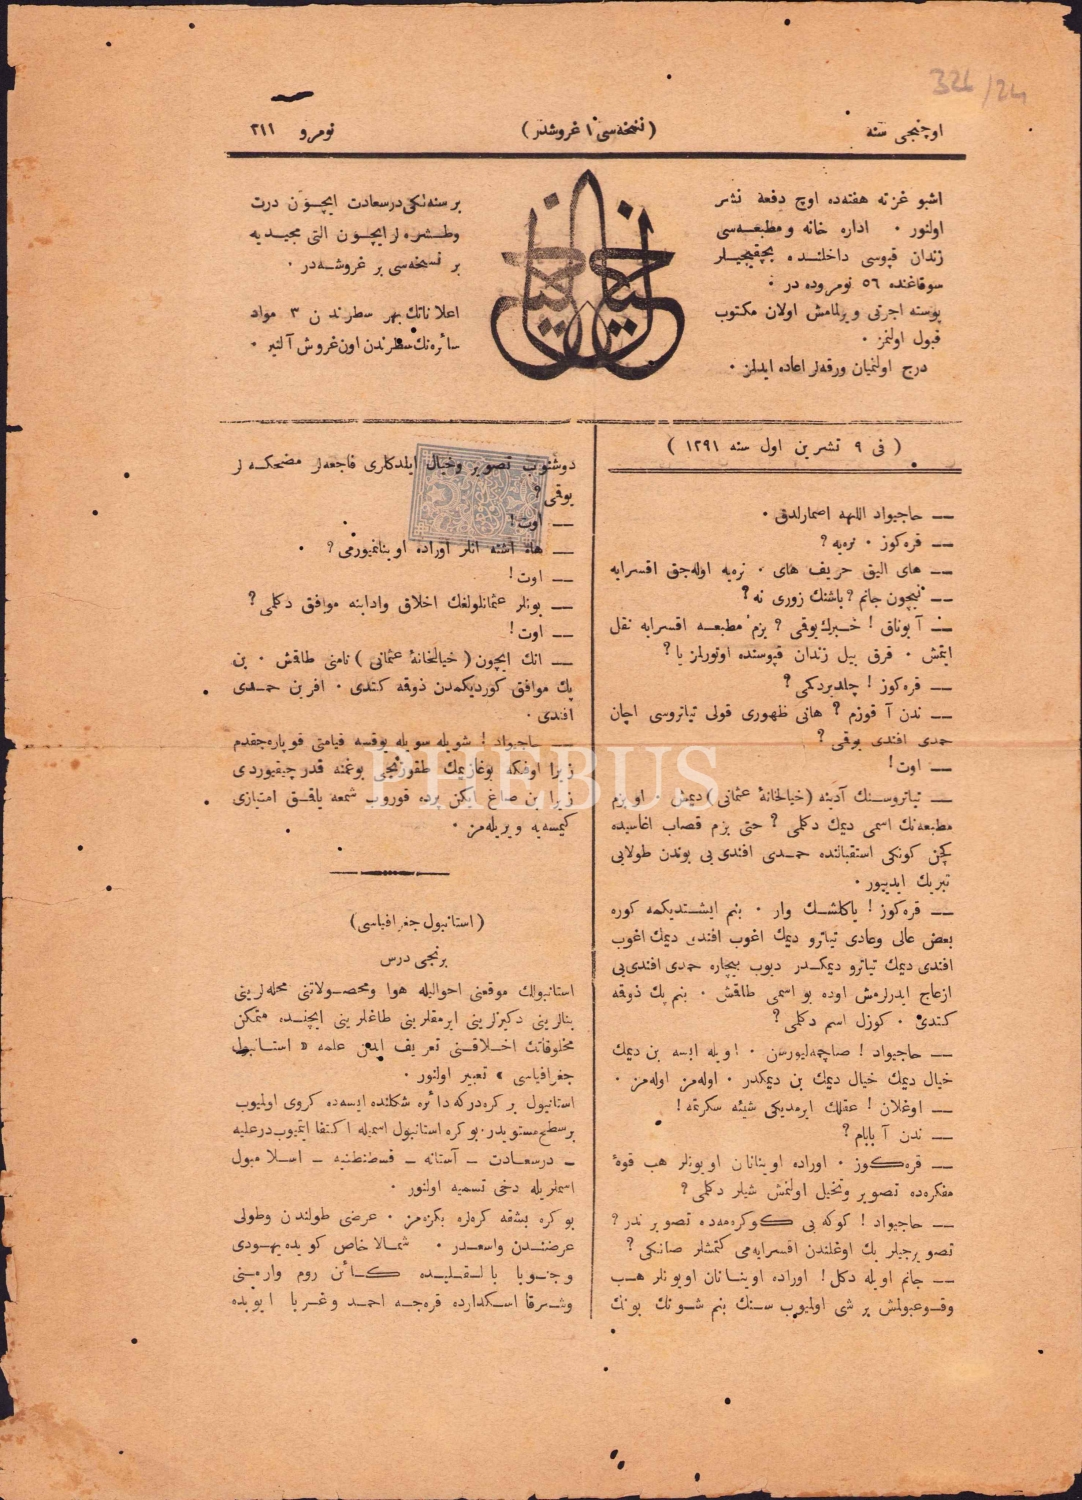 326/24
اوچنجی سنه
(نسخه‌سی ۱ غروشدر)
نومرو ۳۱۱
اشبو غزته هفته‌ده اوچ دفعه نشر
اولنور . اداره خانه ومطبعه‌سی
زندان قپوسی داخلنده بچقیجیلر
سوقاغنده ٥٦ نومروده در .
پوسته اجرتی ویرلمامش اولان مکتوب
قبول اولنمز .
درج اولنمیان ورقه‌لر اعاده ایدلمز .
خیال
خیال
بر سنه‌لکی درسعادت ایچون درت
وطشره‌لر ایچون التی مجیدیه
بر نسخه‌سی بر غروشه‌در .
اعلاناتك بهر سطرندن ۳ مواد
سائره‌نك سطرندن اون غروش آلنیر .
(فی ۹ تشرین اول سنه ۱۲۹۱)
— حاجیواد اللهه اصمارلدق .
— قره‌کوز . نره‌یه ؟
— های الیق حریف های . نره‌یه اوله‌جق اقسرایه
— نیچون جانم ؟ باشنك زوری نه ؟
— آ بوناق ! خبرك یوقمی ؟ بزم مطبعه اقسرایه نقل
ایتمش . قرق ییل زندان قپوسنده اوتورلمز یا ؟
— قره‌کوز ! چلدیردکمی ؟
— ندن آ قوزم ؟ هانی ظهوری قولی تیاتروسی اچان
حمدی افندی یوقمی ؟
— اوت !
— تیاتروسنك آدینه (خیالخانهٔ عثمانی) دیمش . او بزم
مطبعه‌نك اسمی دیمك دکلمی ؟ حتی بزم قصاب اغاسیده
کچن کونکی استقبالنده حمدی افندی‌یی بوندن طولایی
تبریك ایدییور .
— قره‌کوز ! یاکلشك وار . بنم ایشتدیکمه کوره
بعض عالی وعادی تیاترو دیمك اغوب افندی دیمك اغوب
افندی دیمك تیاترو دیمکدر دیوب بیچاره حمدی افندی‌یی
ازعاج ایدرلرمش اوده بو اسمی طاقمش . بنم پك ذوقمه
کتدی . کوزل اسم دکلمی ؟
— حاجیواد ! صاچمه‌لیورسن . اویله ایسه بن دیمك
خیال دیمك خیال دیمك بن دیمکدر . اوله‌مز اوله‌مز .
— اوغلان ! عقلك ایرمدیکی شیئه سکرتمه !
— ندن آ بابام ؟
— قره‌کوز . اوراده اوینانان اویونلر هب قوهٔ
مفکره‌ده تصویر وتخیل اولنمش شیلر دکلمی ؟
— حاجیواد ! کوکه یی کوکره‌مه‌ده تصویر ندر ؟
تصویرجیلر بك اوغلندن اقسرایه‌می کتمشلر صانکی ؟
— جانم اویله دکل ! اوراده اوینانان اویونلر هب
وقوعبولمش بر شی اولمیوب سنك بنم شونك بونك
دوشنوب تصویر وخیال ایلدکلری فاجعه‌لر مضحکه‌لر
یوقمی ؟
— اوت !
— هاه اشته انلر اوراده اوینانمیورمی ؟ .
— اوت !
— بونلر عثمانلولغك اخلاق وادابنه موافق دکلمی ؟
— اوت !
— انك ایچون (خیالخانهٔ عثمانی) نامنی طاقمش . بن
پك موافق کوردیکمدن ذوقمه کتدی . افرین حمدی
افندی .
— حاجیواد ! شویله سویله یوقسه قیامتی قوپاره‌جقدم
زیرا اوفکه بوغازیمك طقوزنجی بوغمنه قدر چیقیوردی
زیرا بن صاغ ایکن پرده قوروب شمعه یاقمق امتیازی
کیمسه‌یه ویریله‌مز .
(استانبول جغرافیاسی)
برنجی درس
استانبولك موقعنی احوالیله هوا ومحصولاتنی محله‌لرینی
بنالرینی دکزلرینی ایرمقلرینی طاغلرینی ایچنده متمکن
مخلوقاتك اخلاقنی تعریف ایدن علمه « استانبول
جغرافیاسی » تعبیر اولنور .
استانبول بر کره‌درکه دائره شکلنده ایسه‌ده کروی اولمیوب
بر سطح مستویدر. بو کره استانبول اسمیله اکتفا ایتمیوب درعلیه
– درسعادت – آستانه – قسطنطنیه – اسلامبول
اسملریله دخی تسمیه اولنور .
بو کره بشقه کره‌لره بکزه‌مز . عرضی طولندن وطولی
عرضندن واسعدر . شمالا خاص کویده یهودی
وجنوبا بالقلیده کائن روم وارمنی
وشرقا اسکدارده قره‌جه احمد وغربا ایوبده
PHEBUS